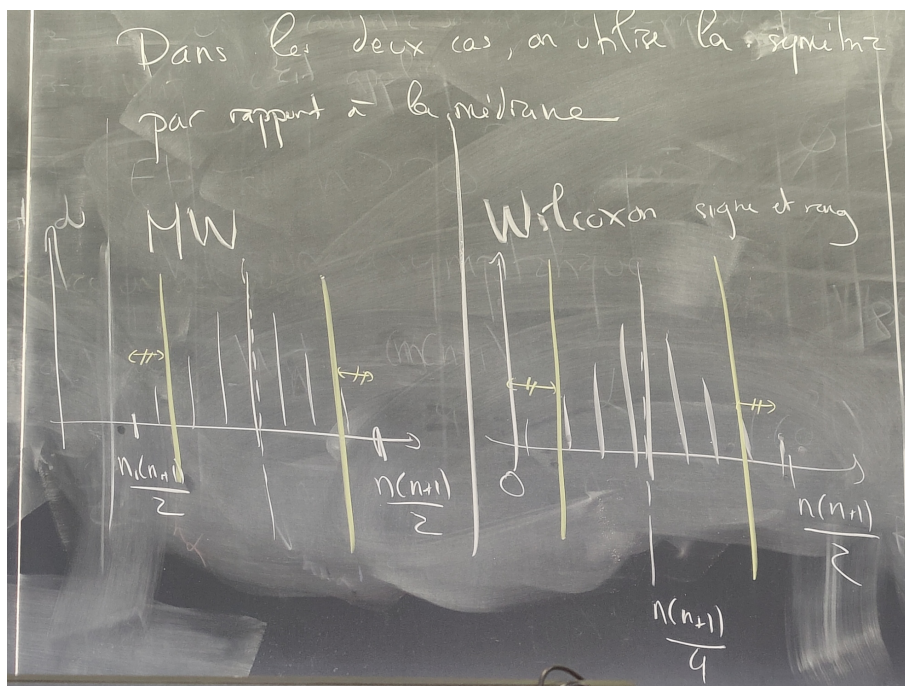 Dans les deux cas, on utilise la symétrie
par rapport à la médiane
MW
n₁(n₁+1)/2
n(n+1)/2
Wilcoxon signe et rang
0
n(n+1)/2
n(n+1)/4